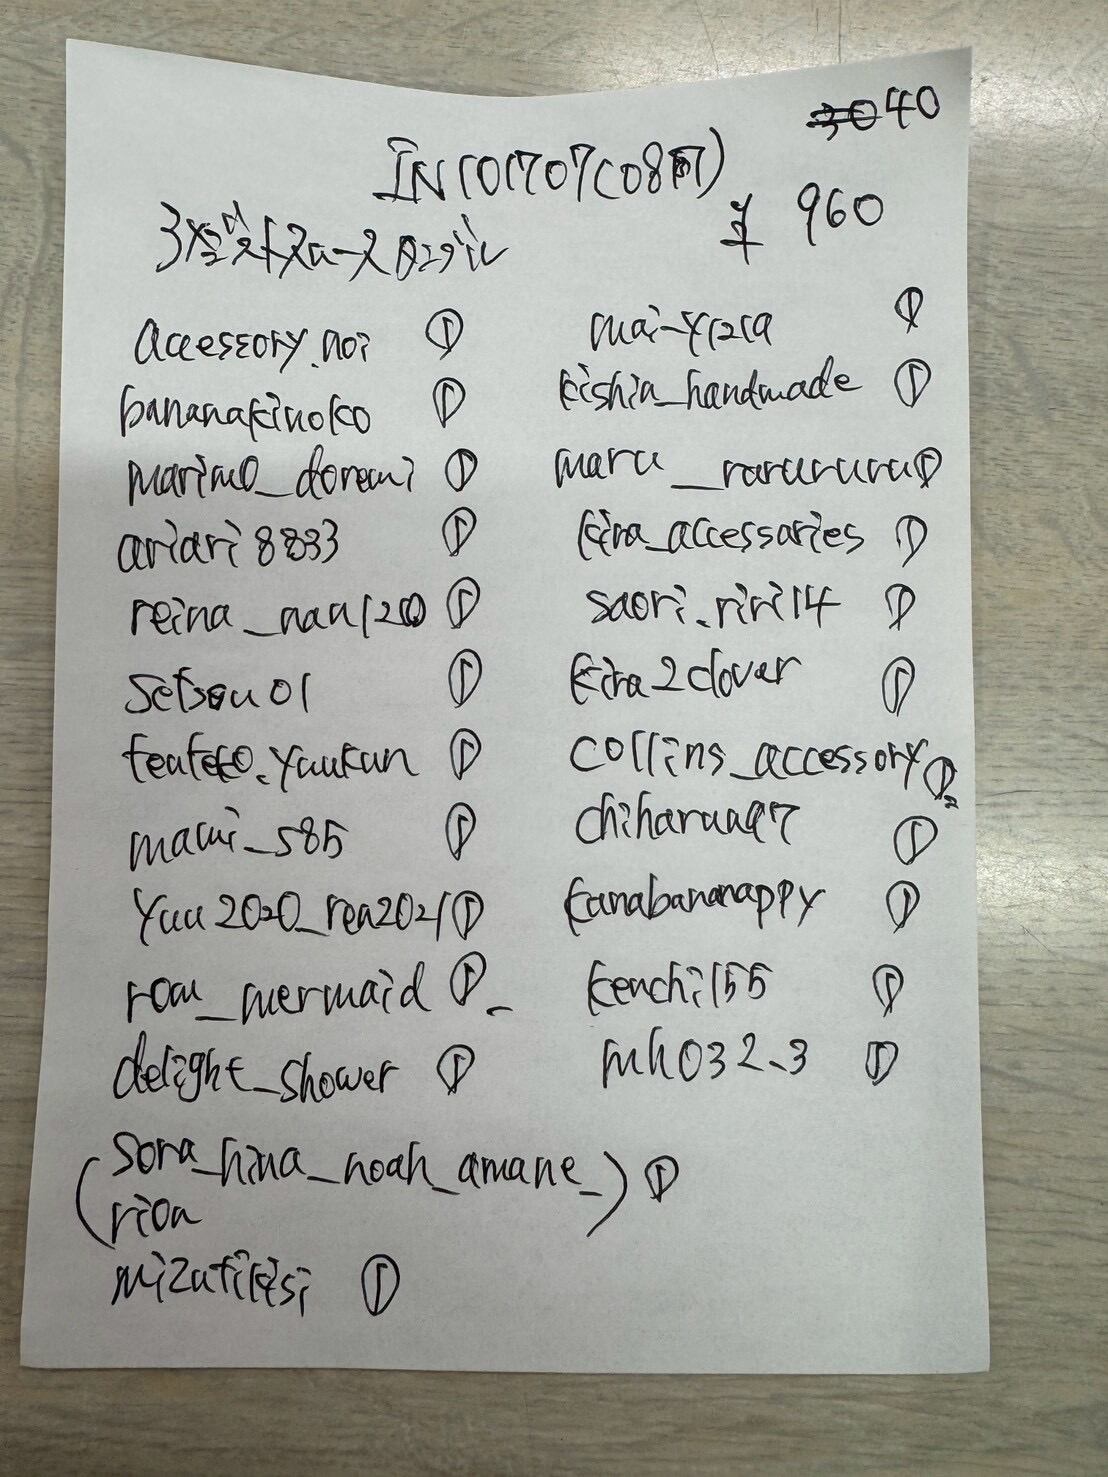 40
IN101707(08月)
¥ 960
accessory.noi ①
bananakinoko ①
marimo_doremi ①
ariari8833 ①
reina_nau1200 ①
①
yuukun ①
mami_585 ①
yuu2020_rea2021 ①
rom_mermaid ①
delight_shower ①
(sora_hina_noah_amane_) ①
rion
①
①
kishin_handmade ①
maru__rarururu ①
kira_accessaries ①
saori.riri14 ①
kira2clover ①
collins_accessory ①
①
kanabananappy ①
kenchi155 ①
mh032_3 ①